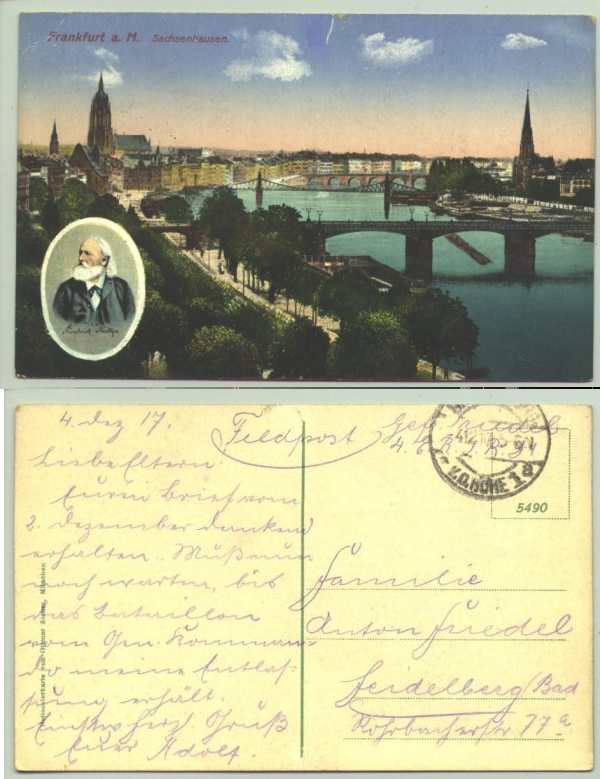 Frankfurt a. M. Sachsenhausen.
4. Dez 17.
Liebe Eltern.
Euren Brief vom
2. Dezember dankend
erhalten. Muß nun
noch warten, bis
das Bataillon
vom Gen. Komman-
do meine Entlas-
sung erhält.
herzl. Gruß
Euer Adolf.
Feldpost
Gefr. Friedel
V.D. HÖHE
5490
Familie
Anton Friedel
Heidelberg/Bad
Rohrbacherstr 77a